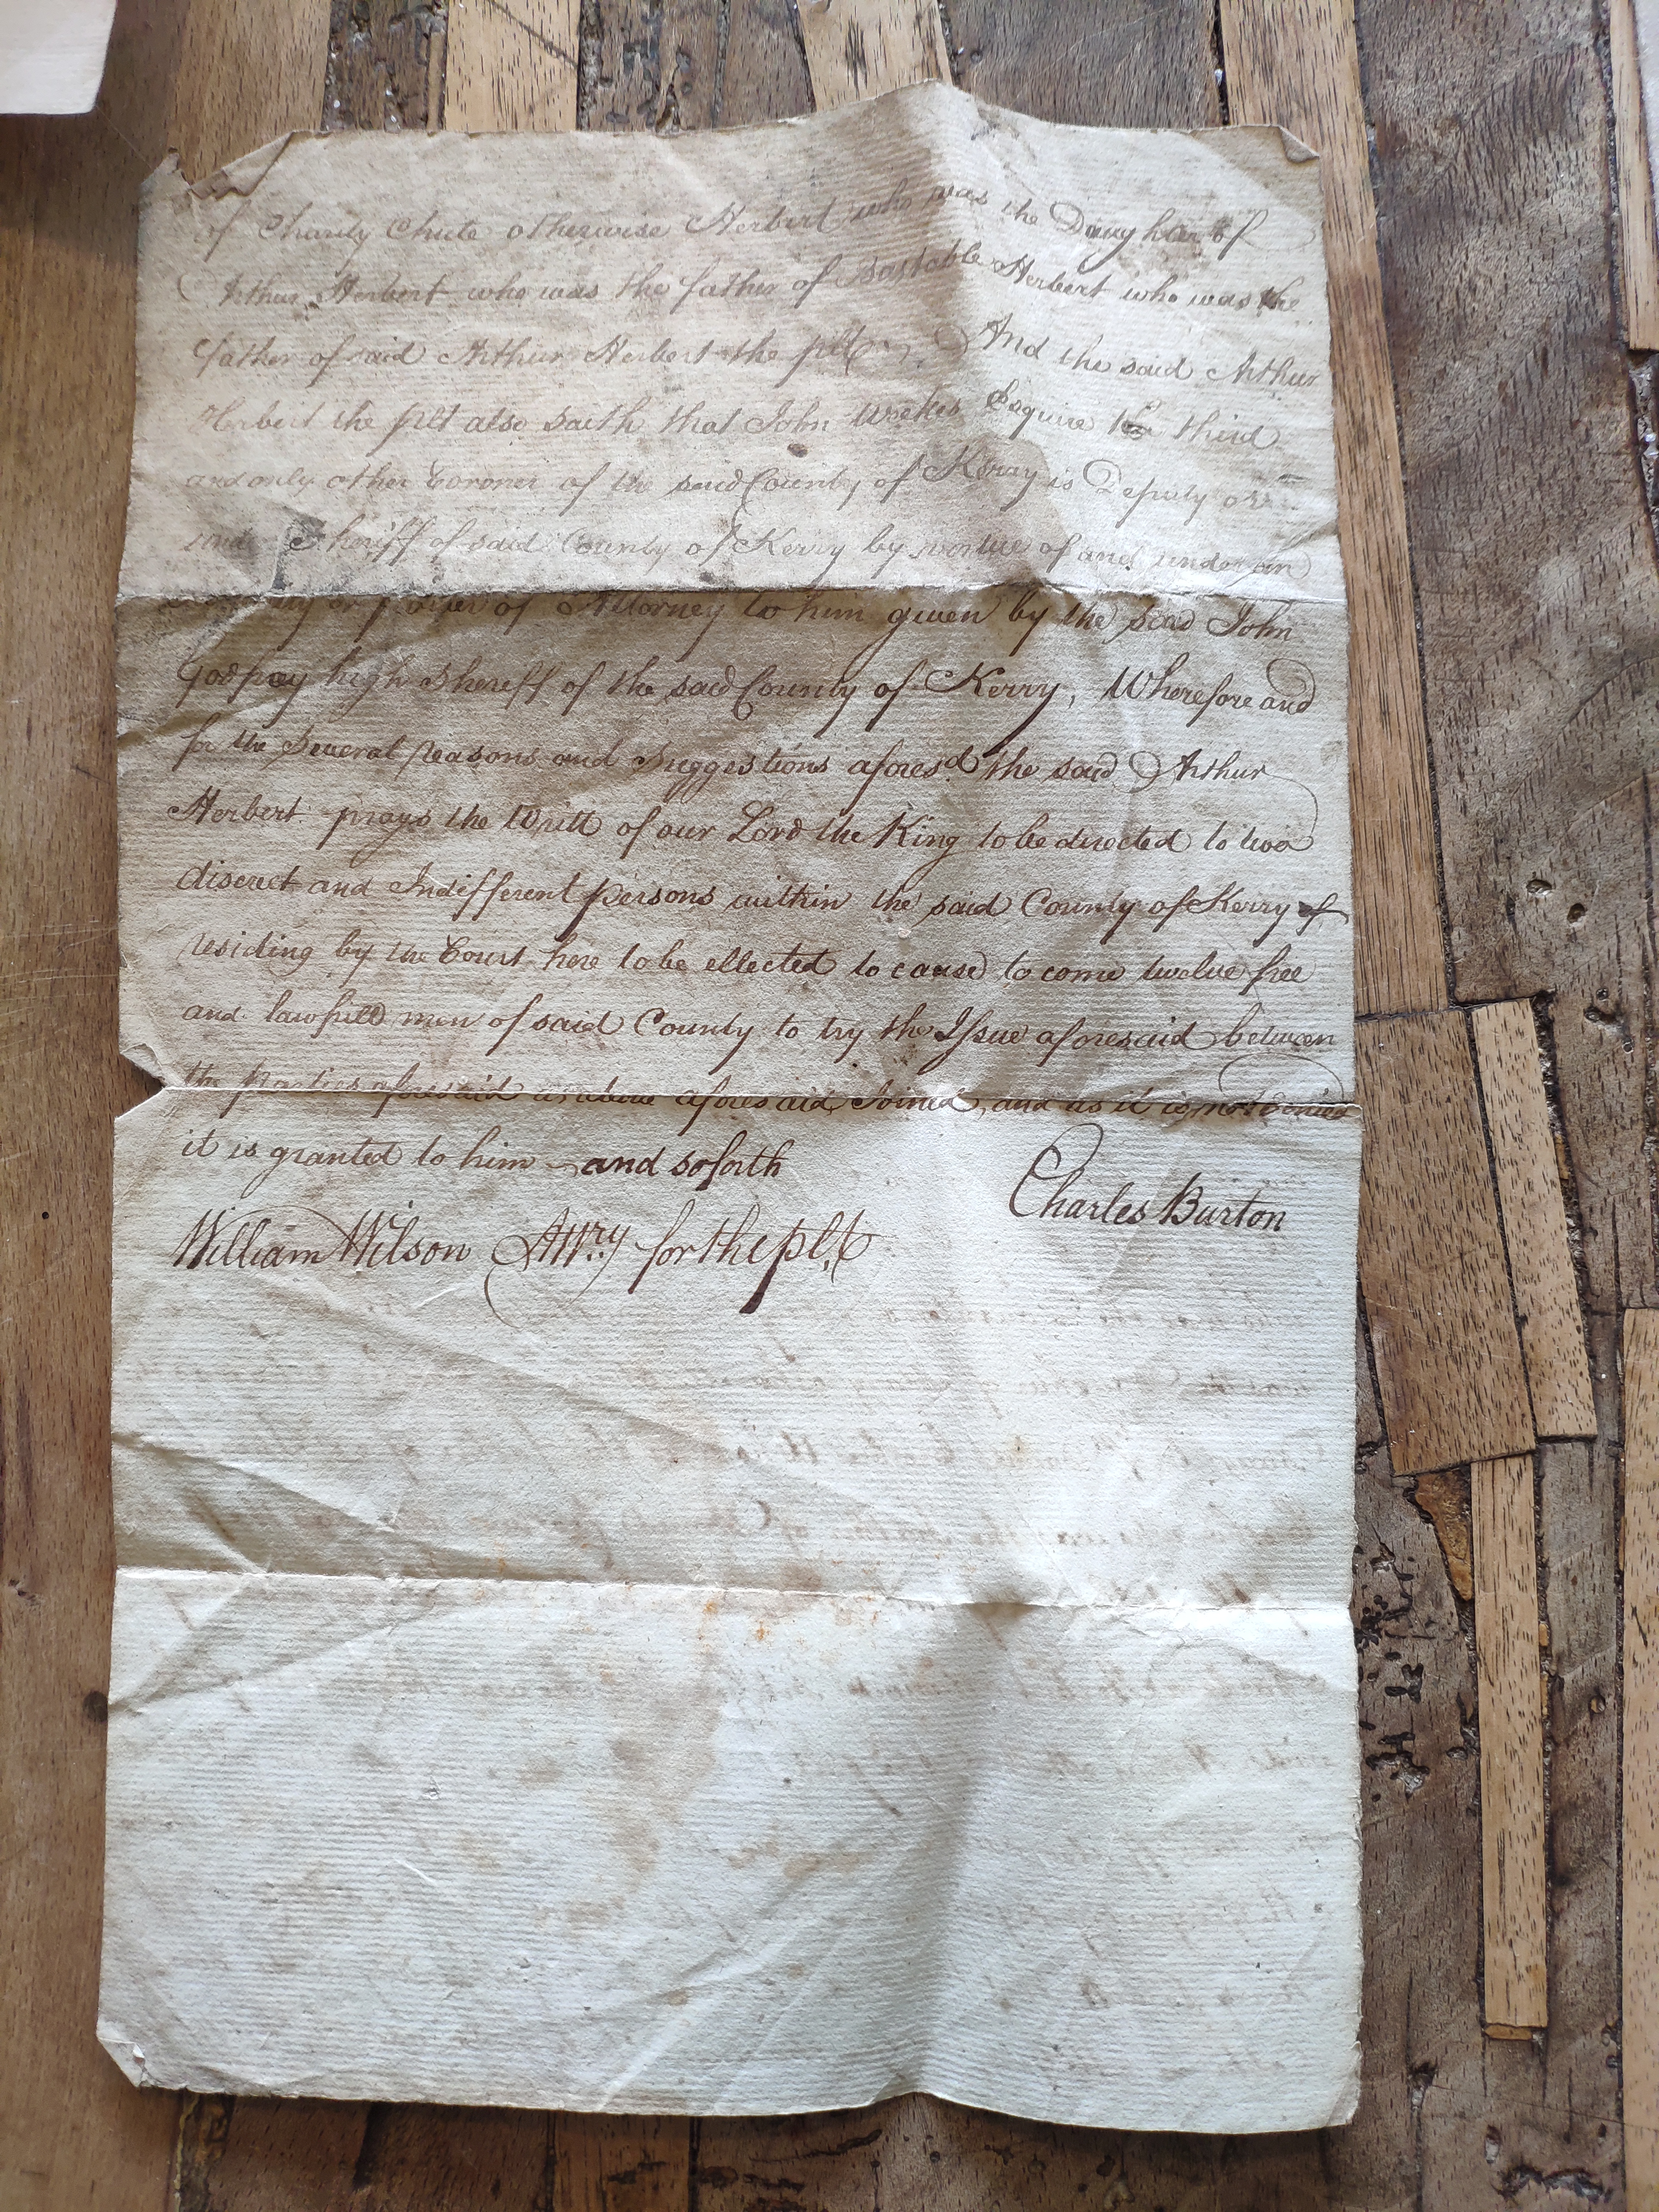 of Charity Chute otherwise Herbert who was the Daughter of
Arthur Herbert who was the father of Bastable Herbert who was the
father of said Arthur Herbert the plt And the said Arthur
Herbert the plt also saith that John Weekes Esquire the third
and only other Coroner of the said County of Kerry is Deputy or
under Sheriff of said County of Kerry by vertue of and under an
or power of Attorney to him given by the said John
Godfrey high Sheriff of the said County of Kerry, Wherefore and
for the Several reasons and Suggestions aforesd the said Arthur
Herbert prays the Writt of our Lord the King to be directed to two
discreet and Indifferent persons within the said County of Kerry
residing by the Court here to be ellected to cause to come twelve free
and lawfull men of said County to try the Issue aforesaid between
the parties aforesaid as above aforesaid Joined, and as it is not denied
it is granted to him and soforth
Charles Burton
William Wilson Attry for the plt